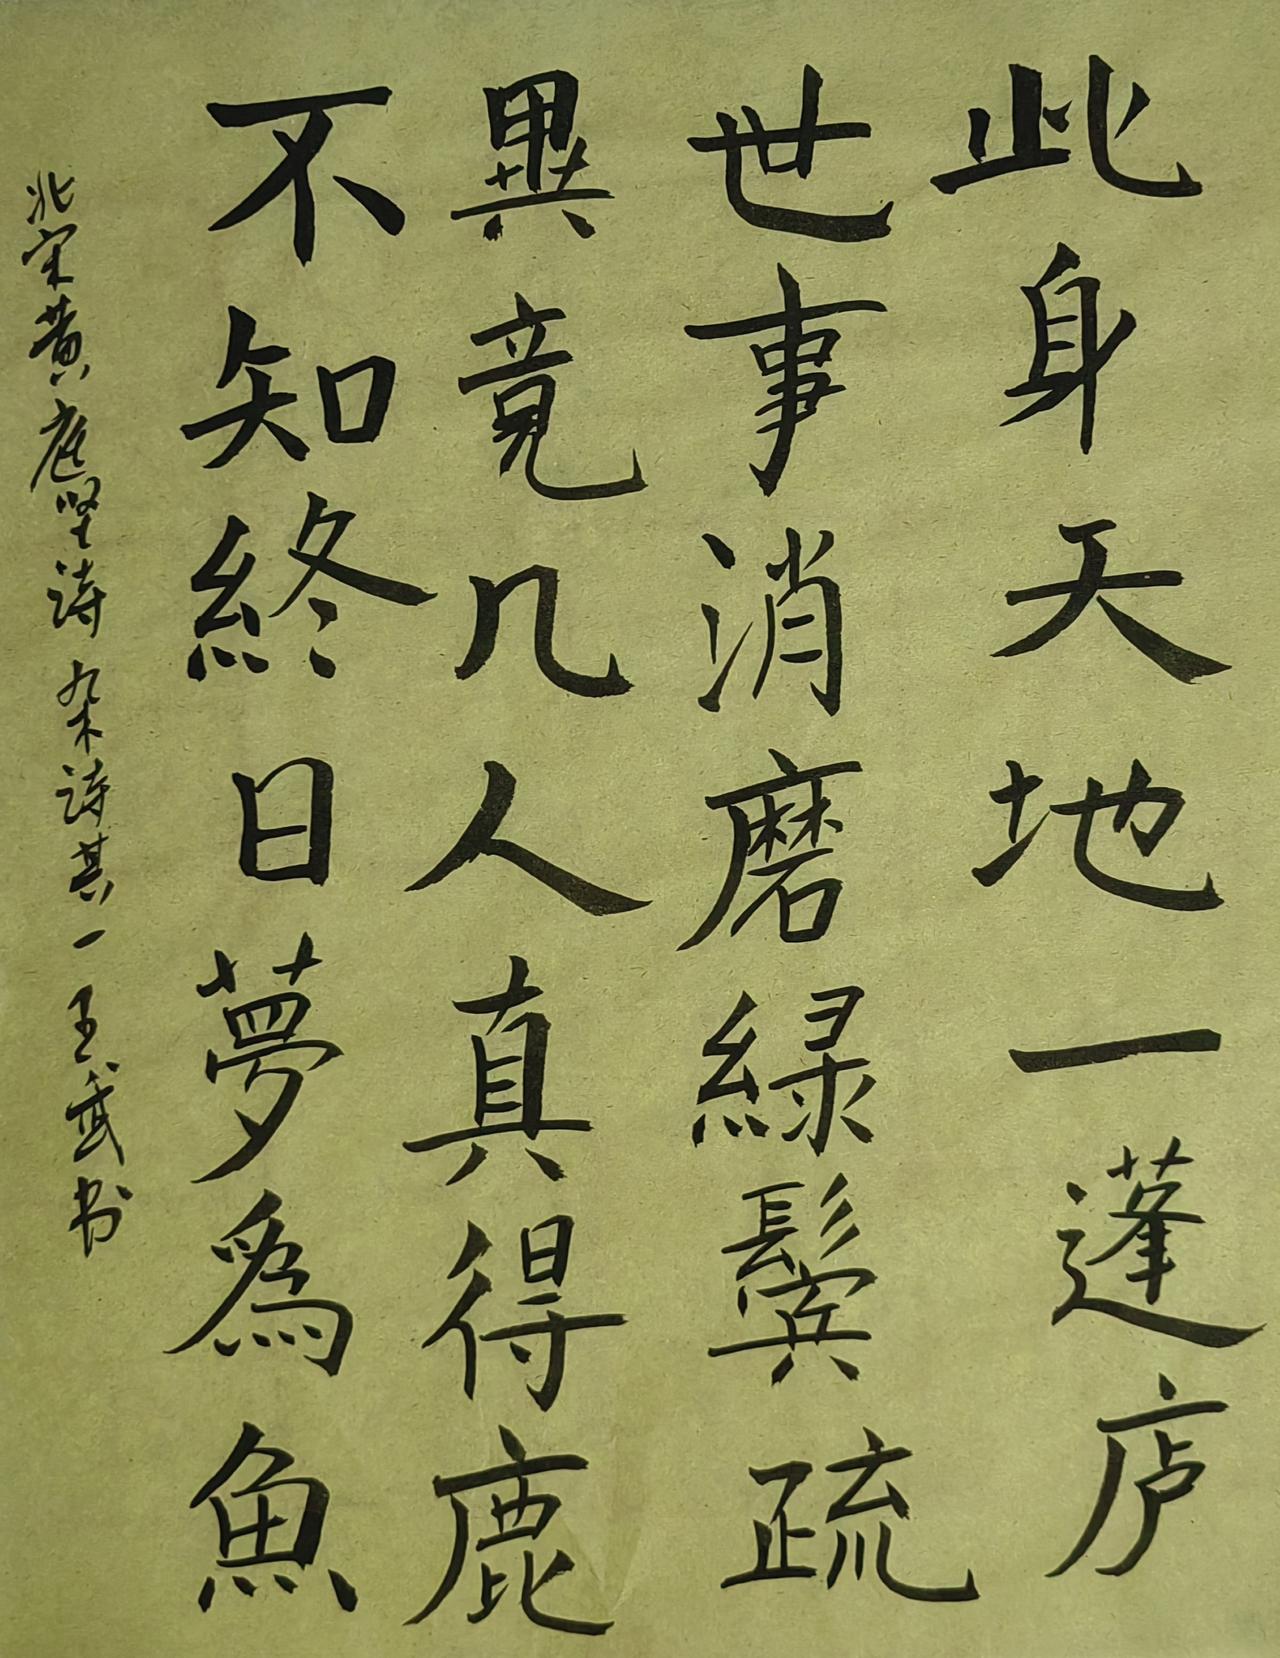 此身天地一蓬庐
世事消磨緑鬓疏
畢竟几人真得鹿
不知終日夢為魚
北宋黄庭坚诗杂诗其一王武书